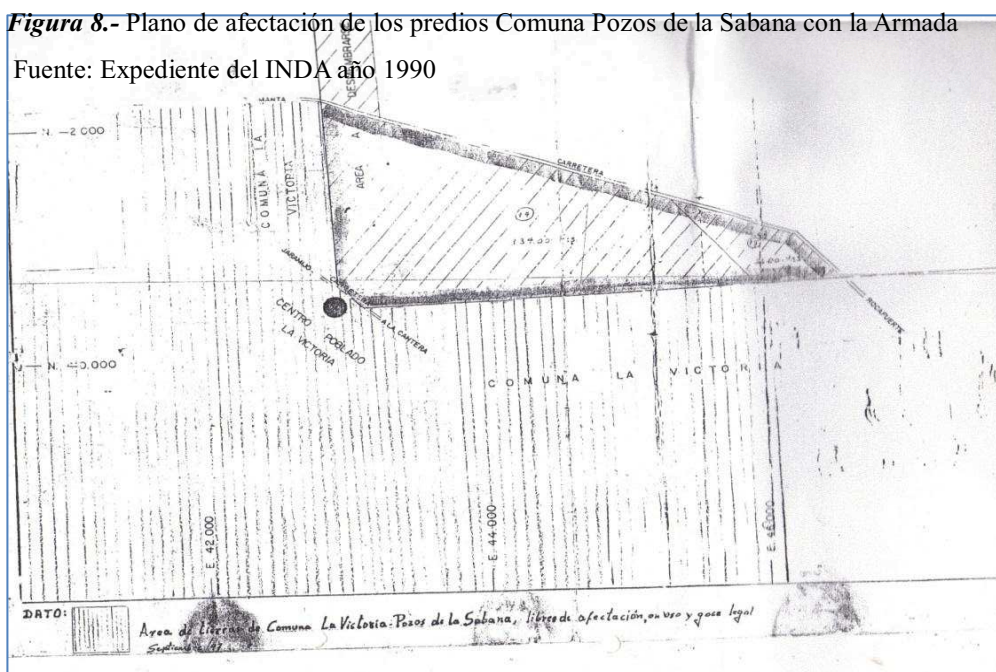 Figura 8.- Plano de afectación de los predios Comuna Pozos de la Sabana con la Armada
Fuente: Expediente del INDA año 1990
MANTA
N. -2 000
COMUNA LA
VICTORIA
AREA A
CARRETERA
14
134.00
JARAMIJO
CENTRO POBLADO
LA VICTORIA
A LA CANTERA
ROCAFUERTE
COMUNA LA VICTORIA
E. 42.000
E. 44.000
E. 46.000
DATO:
Area de tierras de Comuna La Victoria-Pozos de la Sabana, libres de afectación, en uso y goce legal